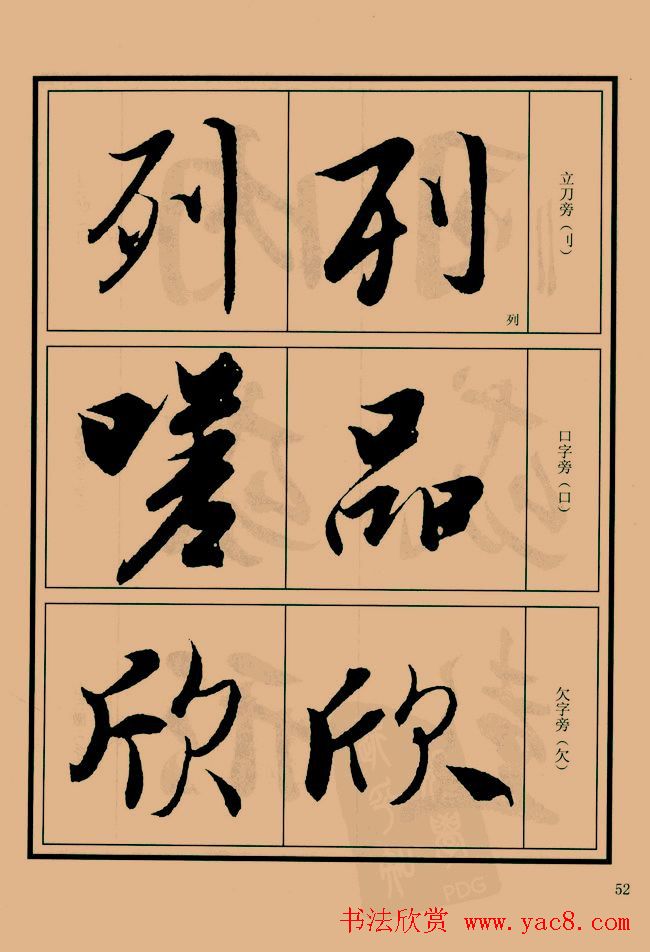 立刀旁（刂）
列
列
列
口字旁（口）
品
嗟
欠字旁（欠）
欣
欣
52
书法欣赏 www.yac8.com
PDG